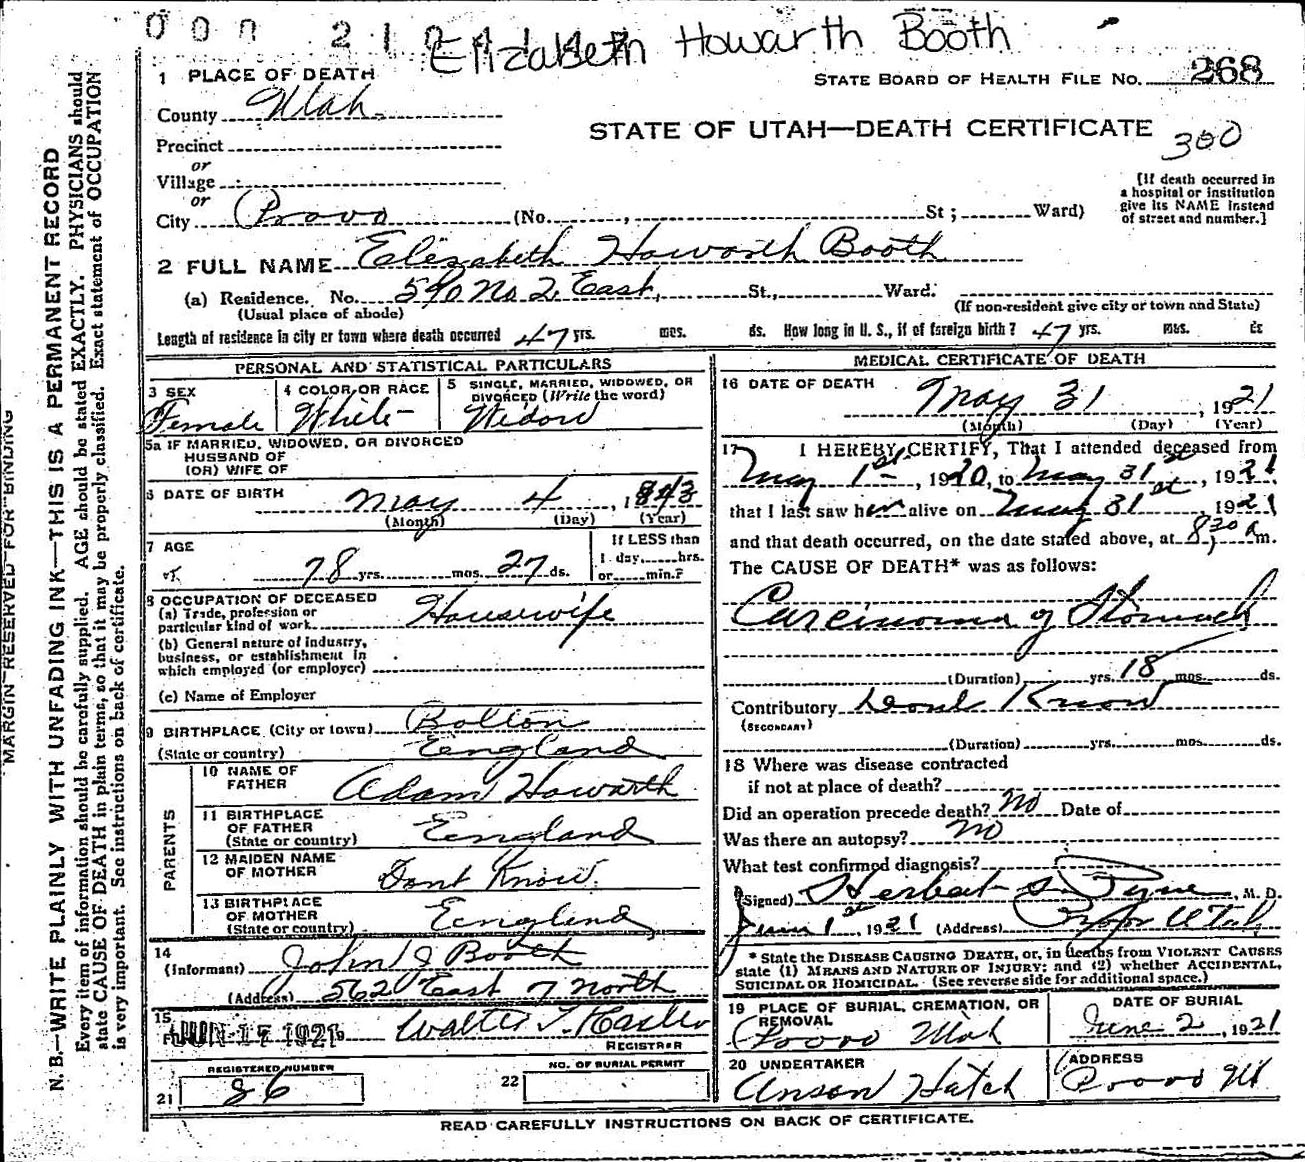 Elizabeth Howarth Booth
1 PLACE OF DEATH
STATE BOARD OF HEALTH FILE NO. 268
County Utah
STATE OF UTAH—DEATH CERTIFICATE
300
Precinct
or
Village
or
City Provo (No. , St; Ward)
[If death occurred in
a hospital or institution
give its NAME instead
of street and number.]
2 FULL NAME Elizabeth Howorth Booth
(a) Residence. No. 590 No 2 East, St., Ward.
(Usual place of abode) (If non-resident give city or town and State)
Length of residence in city or town where death occurred 47 yrs. mos. ds. How long in U. S., if of foreign birth? 47 yrs. mos. ds
PERSONAL AND STATISTICAL PARTICULARS
3 SEX Female
4 COLOR OR RACE White
5 SINGLE, MARRIED, WIDOWED, OR
DIVORCED (Write the word)
Widow
5a IF MARRIED, WIDOWED, OR DIVORCED
HUSBAND OF
(OR) WIFE OF
6 DATE OF BIRTH May 4, 1843
(Month) (Day) (Year)
7 AGE
78 yrs. mos. 27 ds.
If LESS than
1 day, hrs.
or min.?
8 OCCUPATION OF DECEASED
(a) Trade, profession or
particular kind of work Housewife
(b) General nature of industry,
business, or establishment in
which employed (or employer)
(c) Name of Employer
9 BIRTHPLACE (City or town) Bolton
(State or country) England
PARENTS
10 NAME OF
FATHER Adam Howarth
11 BIRTHPLACE
OF FATHER
(State or country) England
12 MAIDEN NAME
OF MOTHER Dont Know.
13 BIRTHPLACE
OF MOTHER
(State or country) England
14
(Informant) John J Booth
(Address) 562 East 7 North
15
JUN 17 1921
REGISTRAR
REGISTERED NUMBER
21 86
22 NO. OF BURIAL PERMIT
MEDICAL CERTIFICATE OF DEATH
16 DATE OF DEATH
May 31, 1921
(Month) (Day) (Year)
17 I HEREBY CERTIFY, That I attended deceased from
May 1st, 1920, to May 31st, 1921
that I last saw her alive on May 31st 1921
and that death occurred, on the date stated above, at 8,30 a m.
The CAUSE OF DEATH* was as follows:
Carcinoma of Stomach
(Duration) yrs. 18 mos. ds.
Contributory Dont Know
(SECONDARY)
(Duration) yrs. mos. ds.
18 Where was disease contracted
if not at place of death?
Did an operation precede death? No Date of
Was there an autopsy? No
What test confirmed diagnosis?
(Signed) Herbert S. Pyne, M. D.
June 1st, 1921 (Address) Provo Utah
* State the DISEASE CAUSING DEATH, or, in deaths from VIOLENT CAUSES
state (1) MEANS AND NATURE OF INJURY; and (2) whether ACCIDENTAL,
SUICIDAL OR HOMICIDAL. (See reverse side for additional space.)
19 PLACE OF BURIAL, CREMATION, OR
REMOVAL
Provo Utah
DATE OF BURIAL
June 2, 1921
20 UNDERTAKER
Anson Hatch
ADDRESS
Provo Ut
READ CAREFULLY INSTRUCTIONS ON BACK OF CERTIFICATE.
MARGIN RESERVED FOR BINDING
N. B.—WRITE PLAINLY WITH UNFADING INK—THIS IS A PERMANENT RECORD
Every item of information should be carefully supplied. AGE should be stated EXACTLY. PHYSICIANS should
state CAUSE OF DEATH in plain terms, so that it may be properly classified. Exact statement of OCCUPATION
is very important. See instructions on back of certificate.